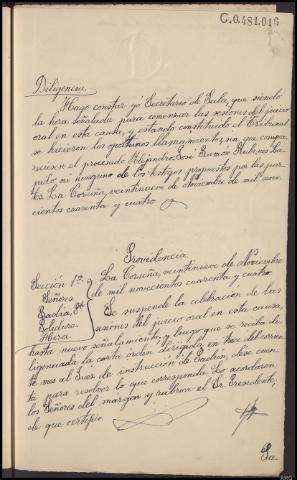 C.0.481.016
Diligencia.
Hago constar yo Secretario de Sala, que siendo
la hora señalada para comenzar las sesiones del juicio
oral en esta causa, y estando constituido el Tribunal
se hicieron los oportunos llamamientos, sin que compa-
reciesen el procesado Alejandro José Ramón
ni ninguno de los testigos propuestos por las par-
tes. La Coruña, veintinueve de Noviembre de mil nove-
cientos cuarenta y cuatro.
Providencia.
Sección 1ª
Señores
Pte
Hera
La Coruña, veintinueve de Noviembre
de mil novecientos cuarenta y cuatro.
Se suspende la celebración de las
sesiones del juicio oral en esta causa,
hasta nuevo señalamiento; y luego que se reciba di-
ligenciada la carta orden dirigida en trece del corrien-
te mes al Juez de instrucción de Padron, dese cuen-
ta para resolver lo que corresponda. Lo acordaron
los Señores del margen y rubrica el Sr. Presidente,
de que certifico.